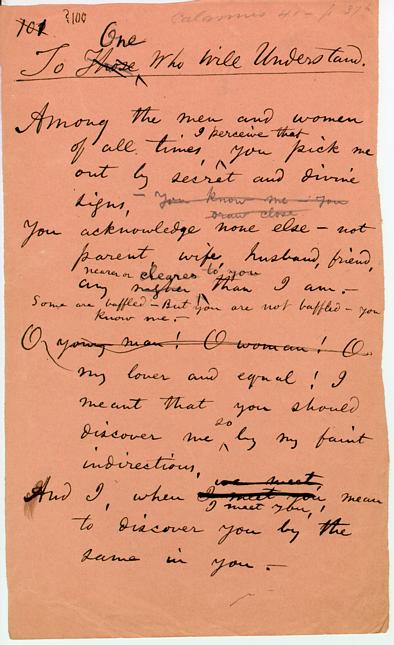 101 ?100 Calamus 41 - p 376
One
To Those Who Will Understand.
Among the men and women
I perceive that
of all times, you pick me
out by secret and divine
signs, — You know me — You
draw close
You acknowledge none else — not
parent, wife, husband, friend,
nearer or dearer to you
any nigher than I am. —
Some are baffled — But you are not baffled — you
know me. —
O young man! O woman! O
my lover and equal! I
meant that you should
so
discover me by my faint
indirections,
we meet
And I, when I meet you mean
I meet you,
to discover you by the
same in you. —